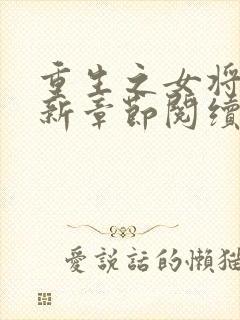 重生之女将
新章節閱續
愛說話的懶猫